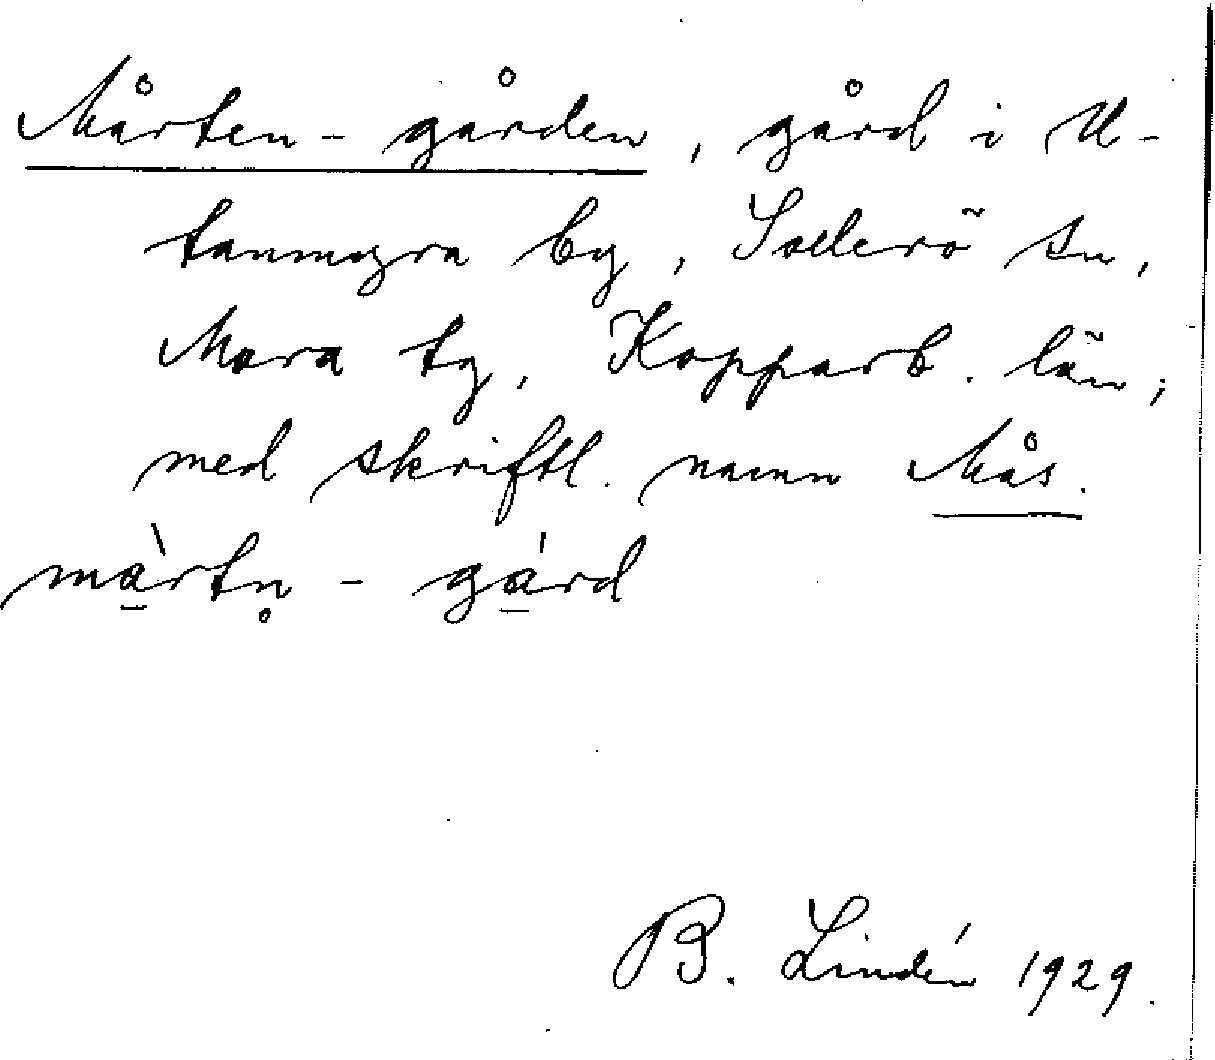 Mårten-gården, gård i U-
tanmyra by, Sollerö sn,
Mora tg, Kopparb. län;
med skriftl. namn Mås.
mà̱rtn̥ - gá̱rd
B. Lindén 1929.